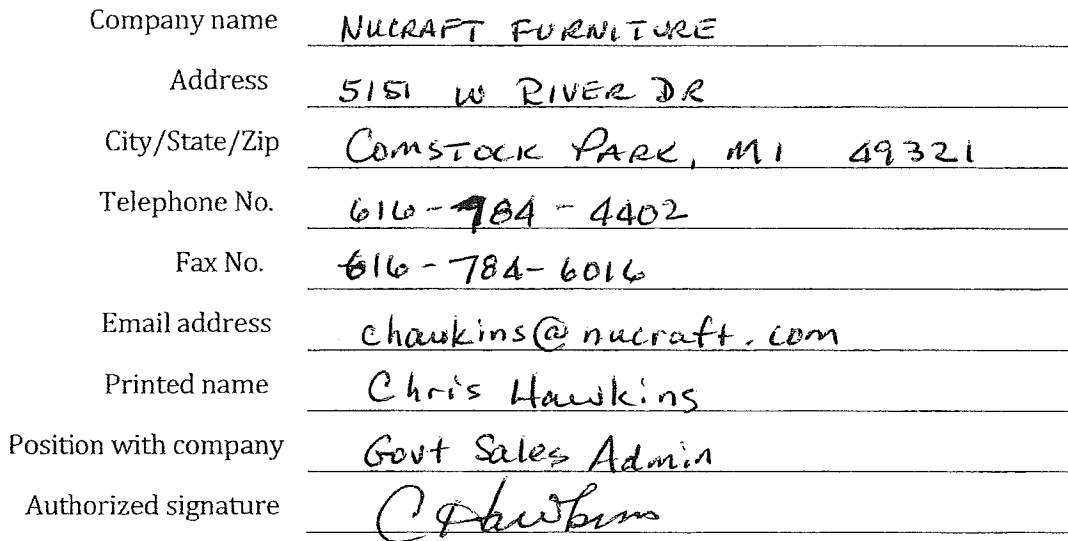 Company name NUCRAFT FURNITURE
Address 5151 W RIVER DR
City/State/Zip COMSTOCK PARK, MI 49321
Telephone No. 616-784-4402
Fax No. 616-784-6016
Email address chawkins@nucraft.com
Printed name Chris Hawkins
Position with company Govt Sales Admin
Authorized signature C Hawkins